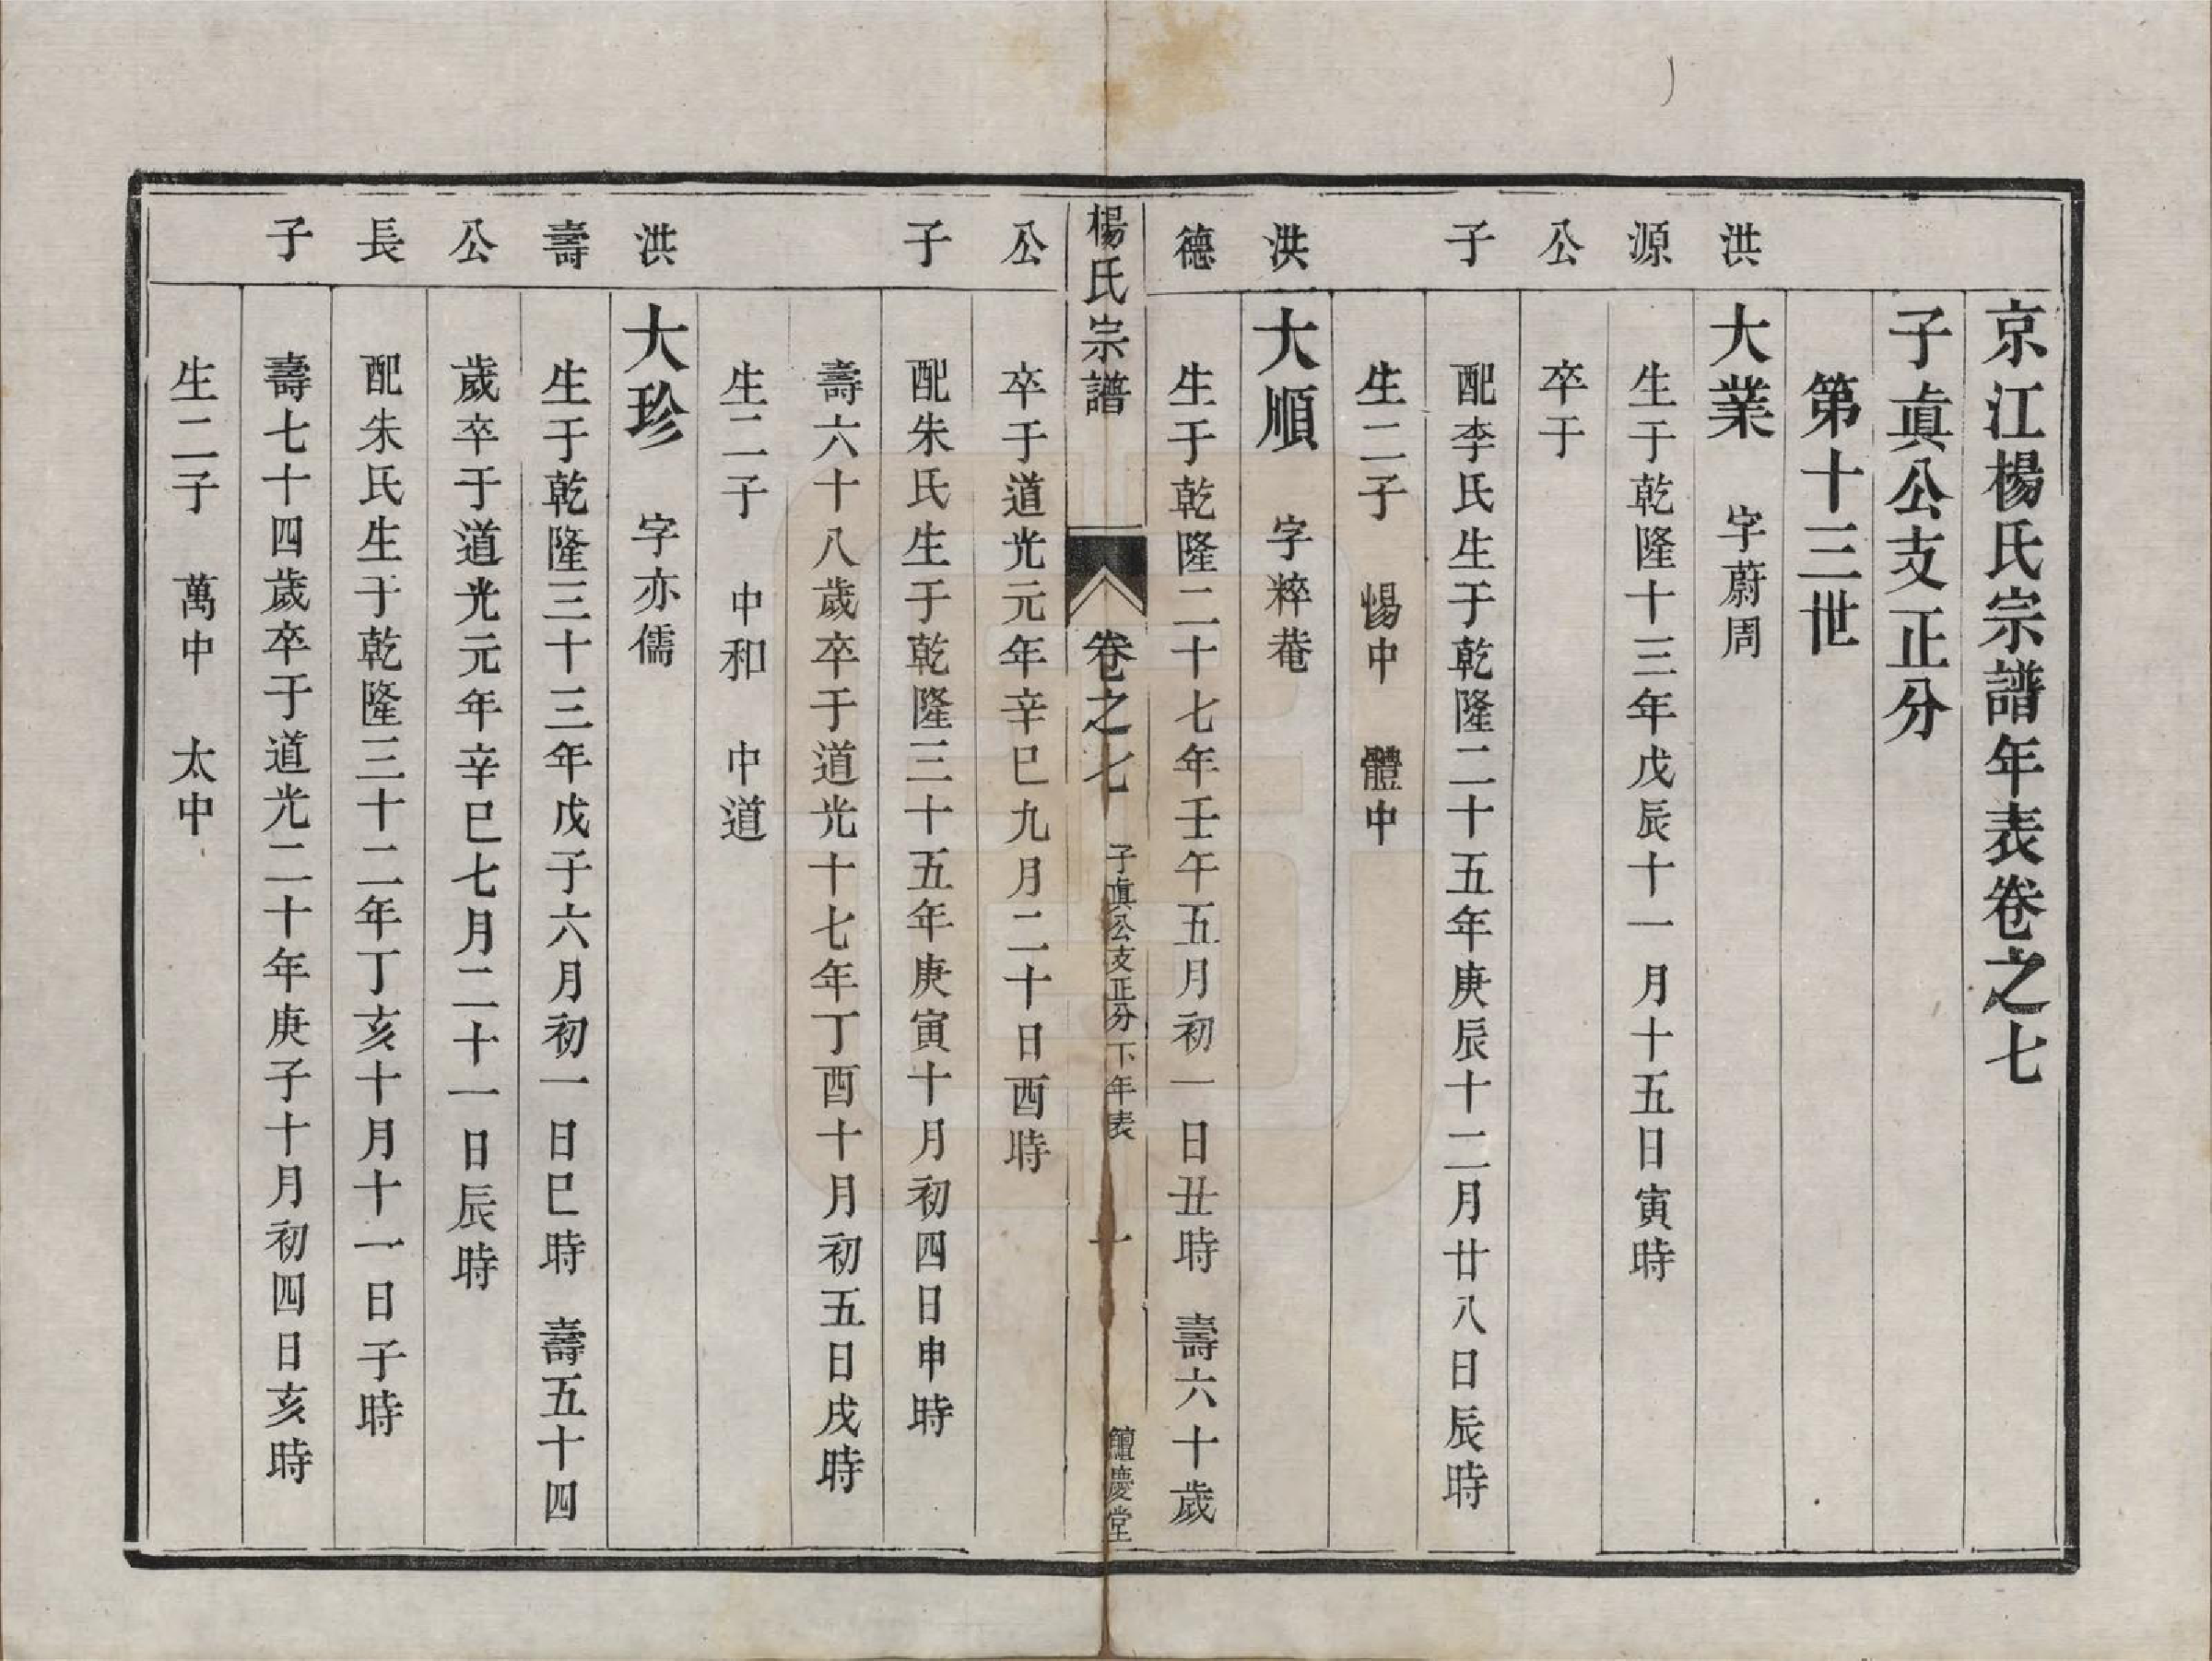 京江楊氏宗譜年表卷之七
子眞公支正分
第十三世
洪源公子
大業 字蔚周
生于乾隆十三年戊辰十一月十五日寅時
卒于
配李氏生于乾隆二十五年庚辰十二月廿八日辰時
生二子 惕中 體中
洪德公子
大順 字粹菴
生于乾隆二十七年壬午五月初一日丑時 壽六十歲
楊氏宗譜 卷之七 子眞公支正分下年表 一 饘慶堂
卒于道光元年辛巳九月二十日酉時
配朱氏生于乾隆三十五年庚寅十月初四日申時
壽六十八歲卒于道光十七年丁酉十月初五日戌時
生二子 中和 中道
洪壽公長子
大珍 字亦儒
生于乾隆三十三年戊子六月初一日巳時 壽五十四
歲卒于道光元年辛巳七月二十一日辰時
配朱氏生于乾隆三十二年丁亥十月十一日子時
壽七十四歲卒于道光二十年庚子十月初四日亥時
生二子 萬中 太中